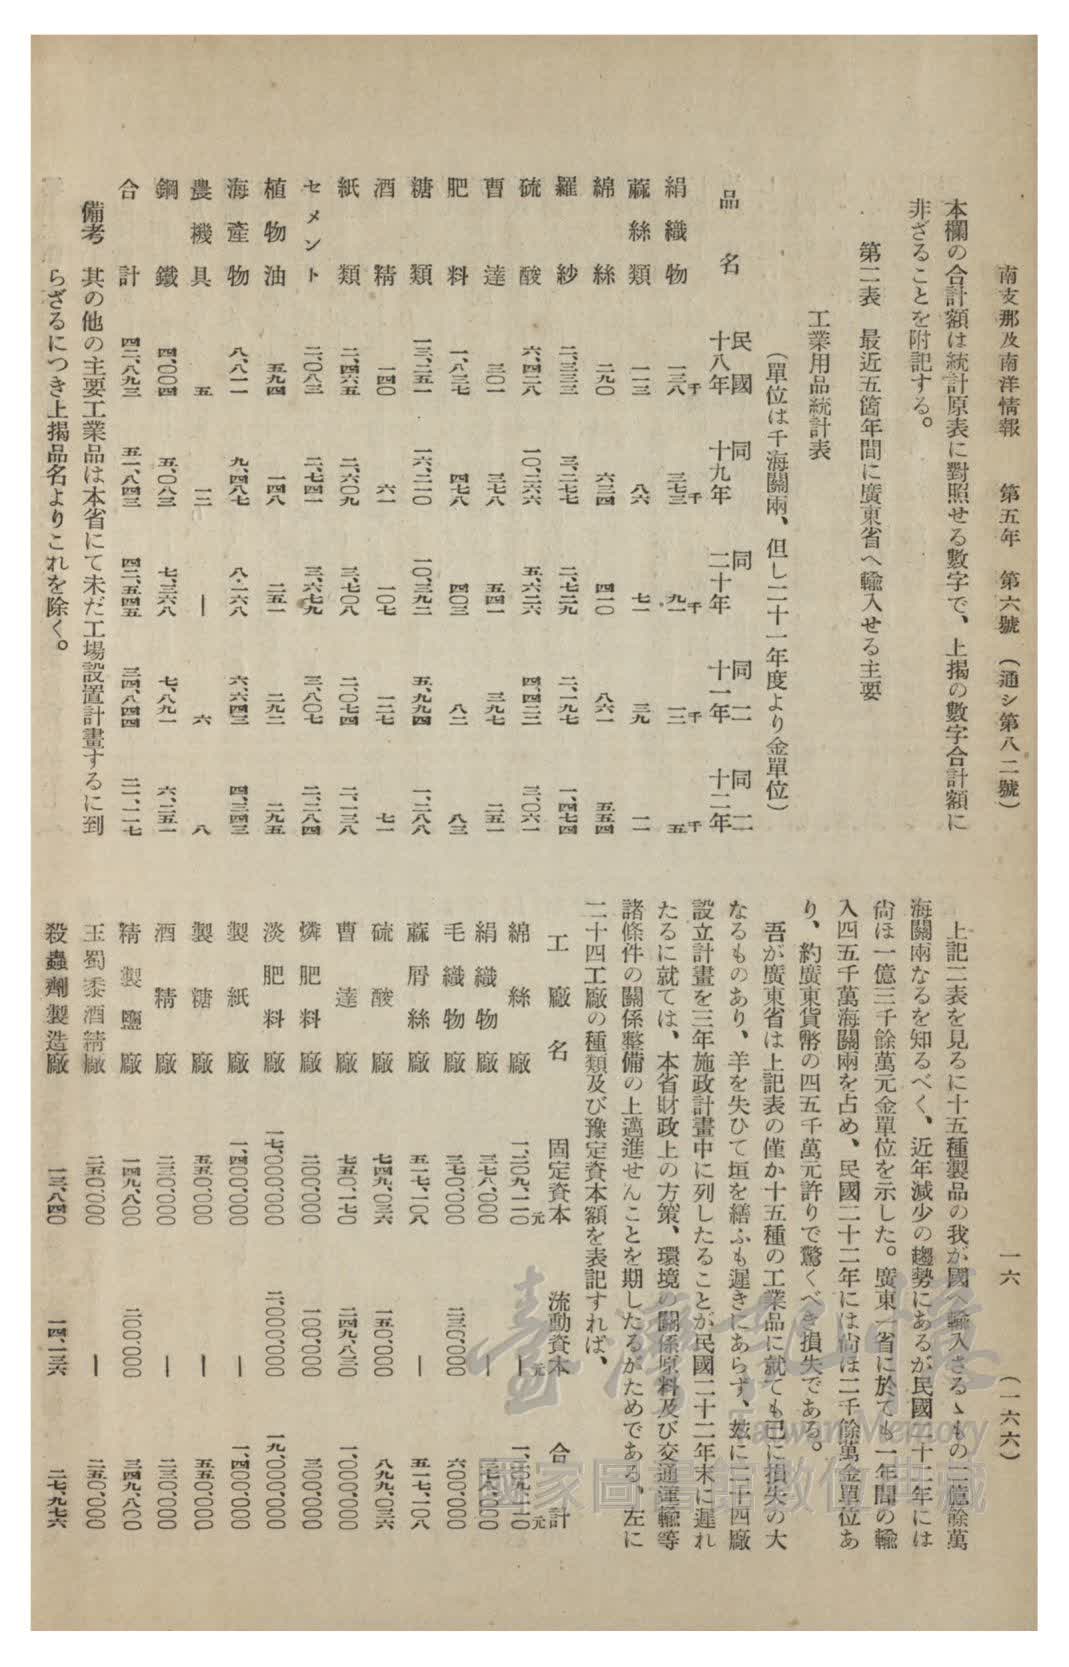 南支那及南洋情報　第五年　第六號　（通シ第八二號）　一六　（一六六）
本欄の合計額は統計原表に對照せる數字で、上揭の數字合計額に
非ざることを附記する。
第二表　最近五箇年間に廣東省へ輸入せる主要
工業用品統計表
（單位は千海關兩、但し二十一年度より金單位）
品名　民國十八年　同十九年　同二十年　同二十一年　同二十二年
絹織物　一三八千　三七三千　九一千　一三千　五千
蔴絲類　一一三　八六　七一　三九　一一
綿絲　二九〇　六三四　四一〇　八六一　五五四
羅紗　二、三三三　三、二七七　二、七二九　二、一九七　一、四七四
硫酸　六、四二八　一〇、二六六　五、六二六　四、四二二　三、〇六一
曹達　三〇一　三七八　五四一　三九七　二五一
肥料　一、八三七　四七八　四〇三　八二　八三
糖類　一三、二五一　一六、二一〇　一〇、三九二　五、九九四　一、二八八
酒精　一四〇　六一　一〇七　一二七　七一
紙類　二、四六五　二、六〇九　三、七〇八　二、〇七四　二、一三八
セメント　二、〇八三　二、七四一　三、六七九　三、八〇七　二、二八四
植物油　五九四　一四八　二五一　二九二　二九五
海產物　八、八一一　九、四八七　八、二六八　六、六四三　四、三四三
農機具　五　一二　—　六　八
鋼鐵　四、〇〇四　五、〇八三　七、三六八　七、八九一　六、二五一
合計　四二、八九三　五一、八四三　四二、五四五　三四、八四四　二一、一一七
備考　其の他の主要工業品は本省にて未だ工場設置計畫するに到
らざるにつき上揭品名よりこれを除く。
上記二表を見るに十五種製品の我が國へ輸入さるゝもの二億餘萬
海關兩なるを知るべく、近年減少の趨勢にあるが民國二十二年には
尙ほ一億三千餘萬元金單位を示した。廣東一省に於ても一年間の輸
入四五千萬海關兩を占め、民國二十二年には尙ほ二千餘萬金單位あ
り、約廣東貨幣の四五千萬元許りで驚くべき損失である。
吾が廣東省は上記表の僅か十五種の工業品に就ても已に損失の大
なるものあり、羊を失ひて垣を繕ふも遲きにあらず、玆に二十四廠
設立計畫を三年施政計畫中に列したることが民國二十二年末に遲れ
たるに就ては、本省財政上の方策、環境の關係原料及び交通運輸等
諸條件の關係整備の上邁進せんことを期したるがためである、左に
二十四工廠の種類及び豫定資本額を表記すれば、
工廠名　固定資本　流動資本　合計
綿絲廠　一、二〇九、二一〇元　—元　一、二〇九、二一〇元
絹織物廠　三七八、〇〇〇　—　三七八、〇〇〇
毛織物廠　三七〇、〇〇〇　二三〇、〇〇〇　六〇〇、〇〇〇
蔴屑絲廠　五一七、一〇八　—　五一七、一〇八
硫酸廠　七四九、〇三六　一五〇、〇〇〇　八九九、〇三六
曹達廠　七五〇、一七〇　二四九、八三〇　一、〇〇〇、〇〇〇
燐肥料廠　二〇〇、〇〇〇　一〇〇、〇〇〇　三〇〇、〇〇〇
淡肥料廠　一七、〇〇〇、〇〇〇　二、〇〇〇、〇〇〇　一九、〇〇〇、〇〇〇
製紙廠　一、四〇〇、〇〇〇　—　一、四〇〇、〇〇〇
製糖廠　五五〇、〇〇〇　—　五五〇、〇〇〇
酒精廠　二三〇、〇〇〇　—　二三〇、〇〇〇
精製鹽廠　一四九、八〇〇　二〇〇、〇〇〇　三四九、八〇〇
玉蜀黍酒精廠　二五〇、〇〇〇　—　二五〇、〇〇〇
殺蟲劑製造廠　一三、八四〇　一四、一三六　二七、九七六
臺灣記憶
Taiwan Memory
國家圖書館數位典藏